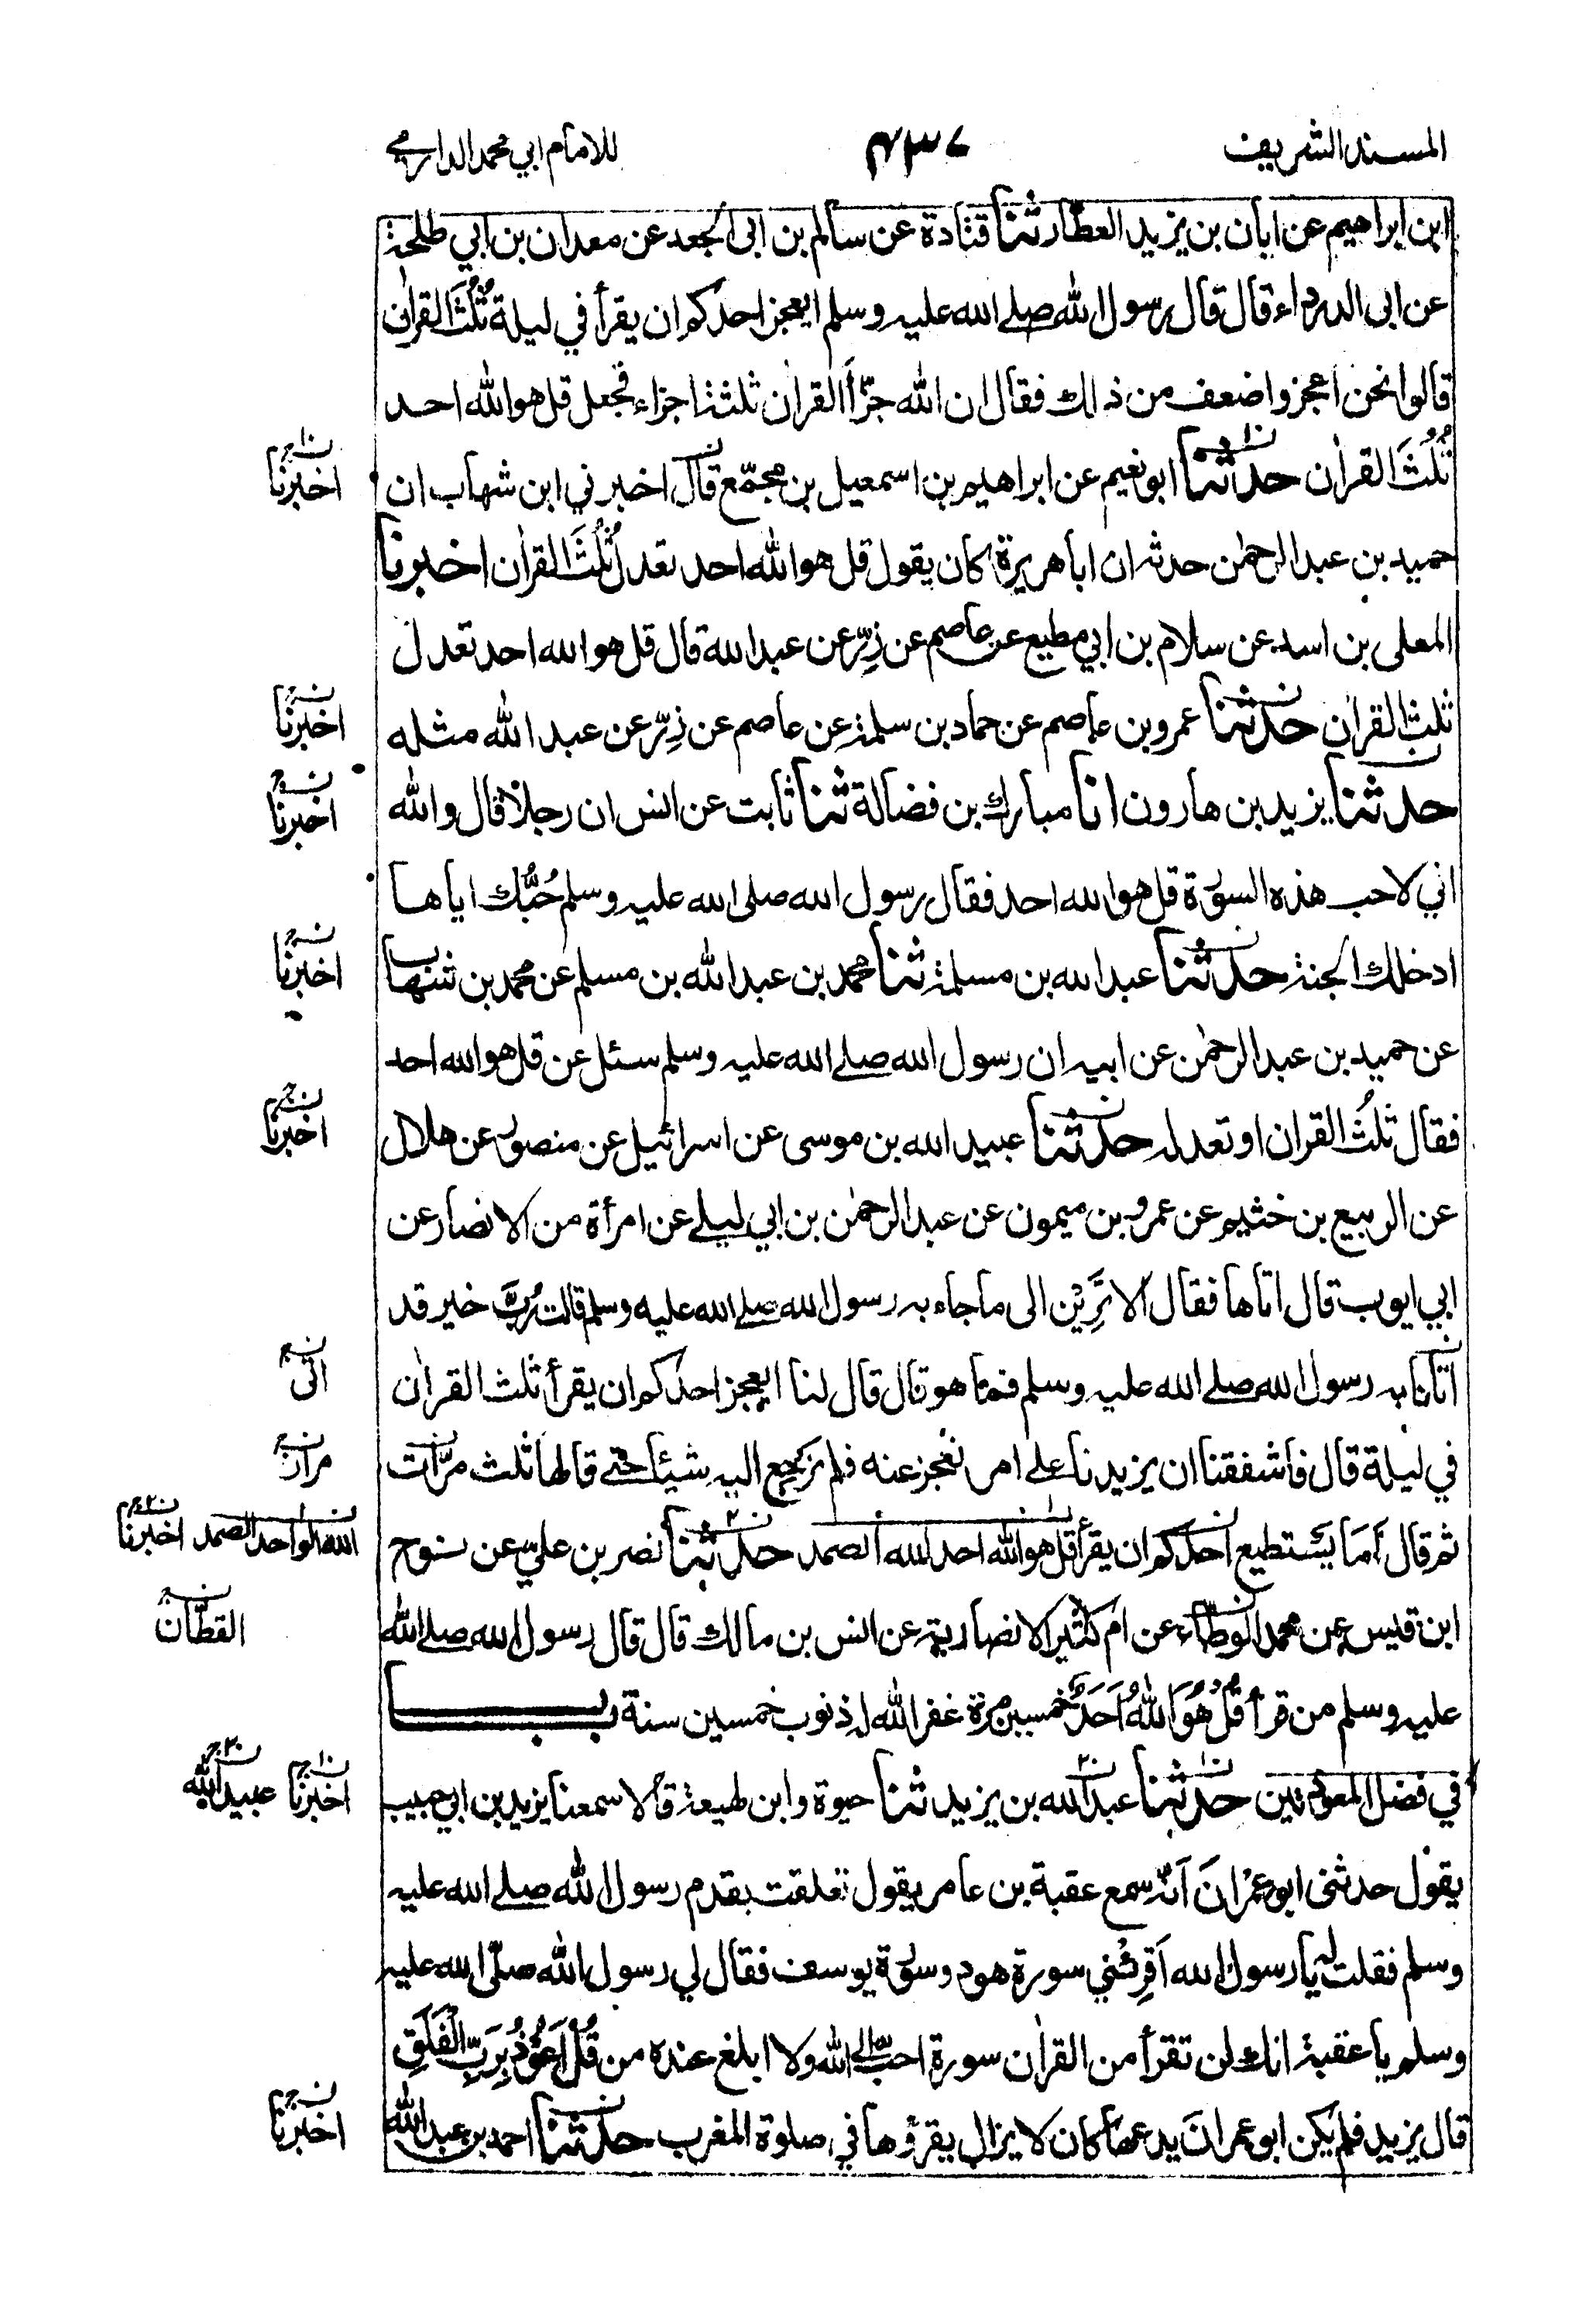 المسند الشريف
٤٣٧
للامام ابي محمد الدارمي
ابن ابراهيم عن ابان بن يزيد العطار ثنا قتادة عن سالم بن ابى الجعد عن معدان بن ابي طلحة
عن ابى الدرداء قال قال رسول الله صلے الله عليه وسلم ايعجز احدكم ان يقرأ في ليلة ثُلُثَ القراٰن
قالوا نحن اعجز واضعف من ذلك فقال ان الله جزّأ القراٰن ثلثة اجزاء فجعل قل هو الله احد
ثُلُثَ القراٰن حدثنا ابو نعيم عن ابراهيم بن اسمعيل بن مجمّع قال اخبرني ابن شهاب ان
اخبرنا
حميد بن عبد الرحمٰن حدثه ان ابا هريرة كان يقول قل هو الله احد تعدل ثُلُثَ القراٰن اخبرنا
المعلى بن اسد عن سلام بن ابي مطيع عن عاصم عن زِرّ عن عبد الله قال قل هو الله احد تعدل
ثلث القراٰن حدثنا عمرو بن عاصم عن حماد بن سلمة عن عاصم عن زِرّ عن عبد الله مثله
اخبرنا
حدثنا يزيد بن هارون انا مبارك بن فضالة ثنا ثابت عن انس ان رجلًا قال والله
اخبرنا
اني لاحب هذه السورة قل هو الله احد فقال رسول الله صلى الله عليه وسلم حُبُّك اياها
ادخلك الجنة حدثنا عبد الله بن مسلمة ثنا محمد بن عبد الله بن مسلم عن محمد بن شهاب
اخبرنا
عن حميد بن عبد الرحمٰن عن ابيه ان رسول الله صلے الله عليه وسلم سئل عن قل هو الله احد
فقال ثلُثُ القراٰن او تعدله حدثنا عبيد الله بن موسى عن اسرائيل عن منصور عن هلال
اخبرنا
عن الربيع بن خثيم عن عمرو بن ميمون عن عبد الرحمٰن بن ابي ليلے عن امرأة من الانصار عن
ابي ايوب قال اتاها فقال الا تَرَيْن الى ما جاء به رسول الله صلے الله عليه وسلم قالت رُبَّ خير قد
اتانا به رسول الله صلے الله عليه وسلم فما هو قال قال لنا ايعجز احدكم ان يقرأ ثلث القراٰن
اتى
في ليلة قال فاشفقنا ان يزيدنا علے امر نعجز عنه فلم نرجع اليه شيئا حتے قالها ثلث مرّات
مرار
ثم قال أمَا يستطيع احدكم ان يقرأ قل هو الله احد الله الصمد حدثنا نصر بن عليّ عن نوح
الله الواحد الصمد اخبرنا
ابن قيس عن محمد الوطّاء عن ام كثير الانصارية عن انس بن مالك قال قال رسول الله صلے الله
القطّان
عليه وسلم من قرأ قُلْ هُوَ اللهُ اَحَدٌ خمسين مرة غفر الله له ذنوب خمسين سنة باب
في فضل المعوذتين حدثنا عبد الله بن يزيد ثنا حيوة وابن لهيعة قالا سمعنا يزيد بن ابي حبيب
اخبرنا عبيد الله
يقول حدثنى ابو عمران انه سمع عقبة بن عامر يقول تعلقت بقدم رسول الله صلے الله عليه
وسلم فقلت له يا رسول الله اَقرِئني سورة هود وسورة يوسف فقال لي رسول الله صلّى الله عليه
وسلم يا عقبة انك لن تقرأ من القراٰن سورة احب الى الله ولا ابلغ عنده من قُلْ اَعُوْذُ بِرَبِّ الْفَلَقِ
قال يزيد فلم يكن ابو عمران يدعها كان لا يزال يقرؤها في صلوة المغرب حدثنا احمد بن عبد الله
اخبرنا